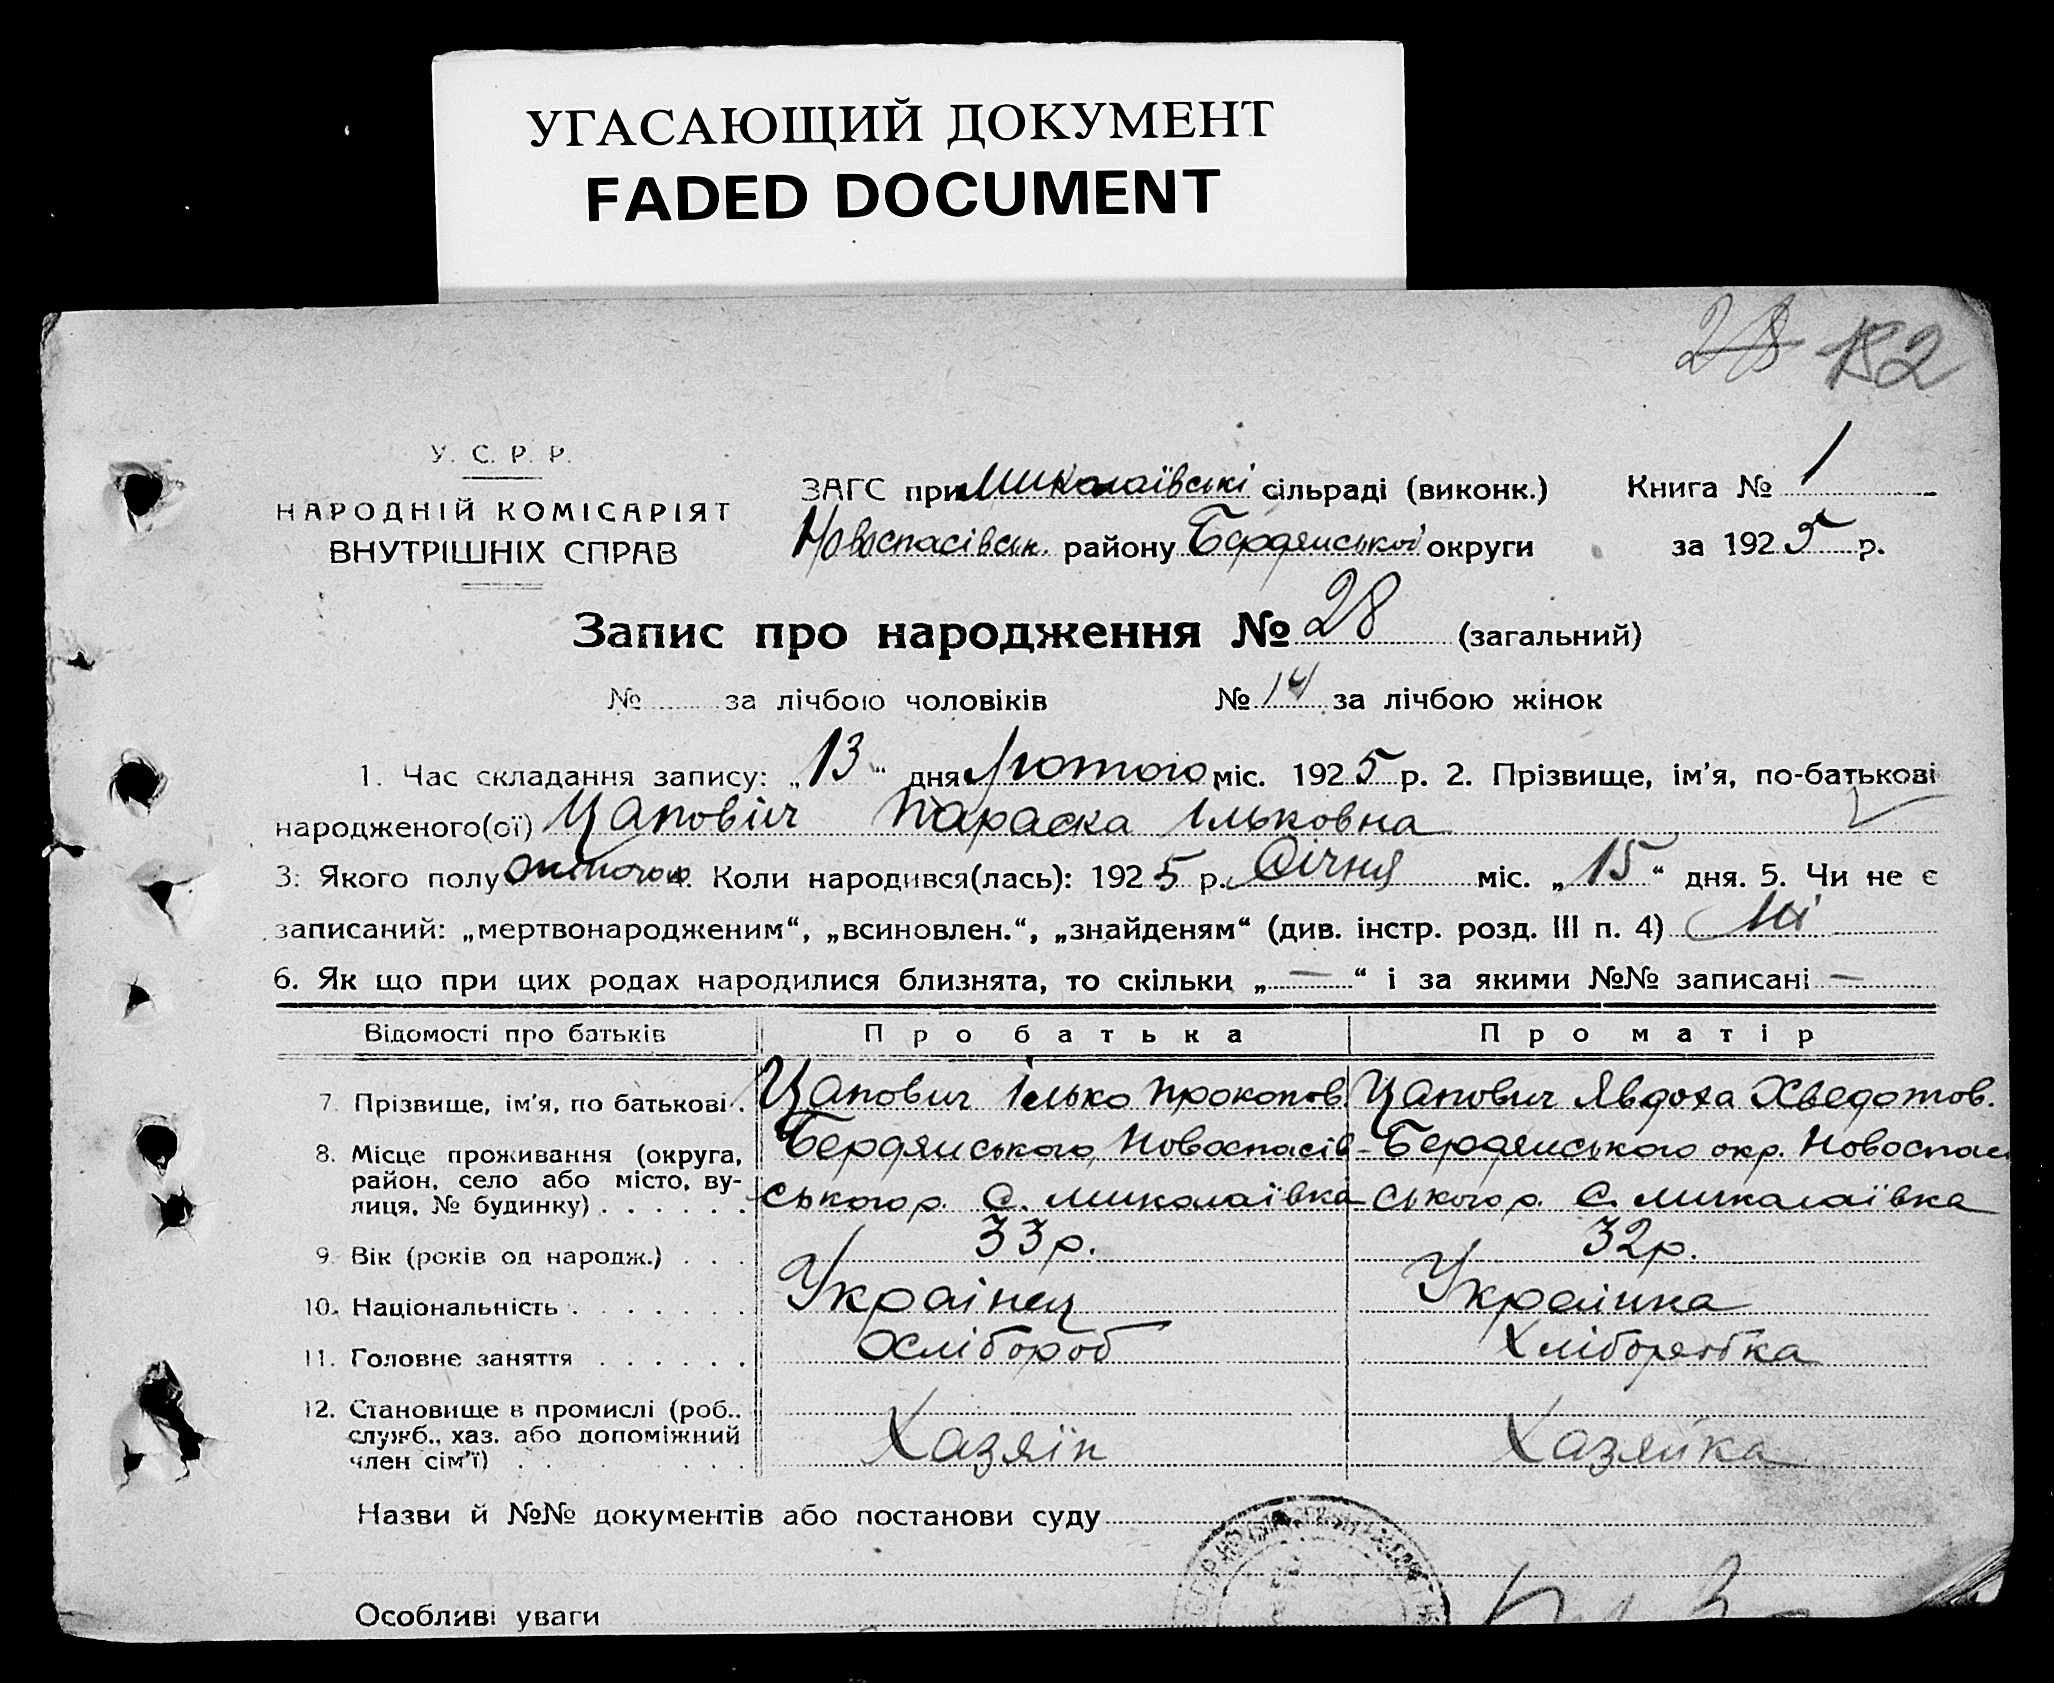 УГАСАЮЩИЙ ДОКУМЕНТ
FADED DOCUMENT
28 132
У. С. Р. Р.
НАРОДНІЙ КОМІСАРІЯТ
ВНУТРІШНІХ СПРАВ
ЗАГС при Миколаївські сільраді (виконк.) Книга № 1
Новоспасівськ. району Бердянської округи за 1925 р.
Запис про народження № 28 (загальний)
№ за лічбою чоловіків № 14 за лічбою жінок
1. Час складання запису: „13“ дня лютого міс. 1925 р. 2. Прізвище, ім'я, по-батькові
народженого(ої) Цапович Параска Ільковна
3. Якого полу жіночого. Коли народився(лась): 1925 р. Січня міс. „15“ дня. 5. Чи не є
записаний: „мертвонародженим“, „всиновлен.“, „знайденям“ (див. інстр. розд. III п. 4) Ні
6. Як що при цих родах народилися близнята, то скільки „—“ і за якими №№ записані —
Відомості про батьків Про батька Про матір
7. Прізвище, ім'я, по батькові. Цапович Ілько Прокопов. Цапович Явдоха Хведотов.
8. Місце проживання (округа, район, село або місто, вулиця, № будинку) Бердянського Новоспасів- Бердянського окр. Новоспас
ського р. С. Миколаївка ського р. С. Миколаївка
9. Вік (років од народж.) . . . 33 р. 32 р.
10. Національність . . . . . . . Українец Українка
11. Головне заняття . . . . . . Хлібороб Хліборобка
12. Становище в промислі (роб.. служб., хаз. або допоміжний член сім'ї) Хазяїн Хазяйка
Назви й №№ документів або постанови суду
Особливі уваги